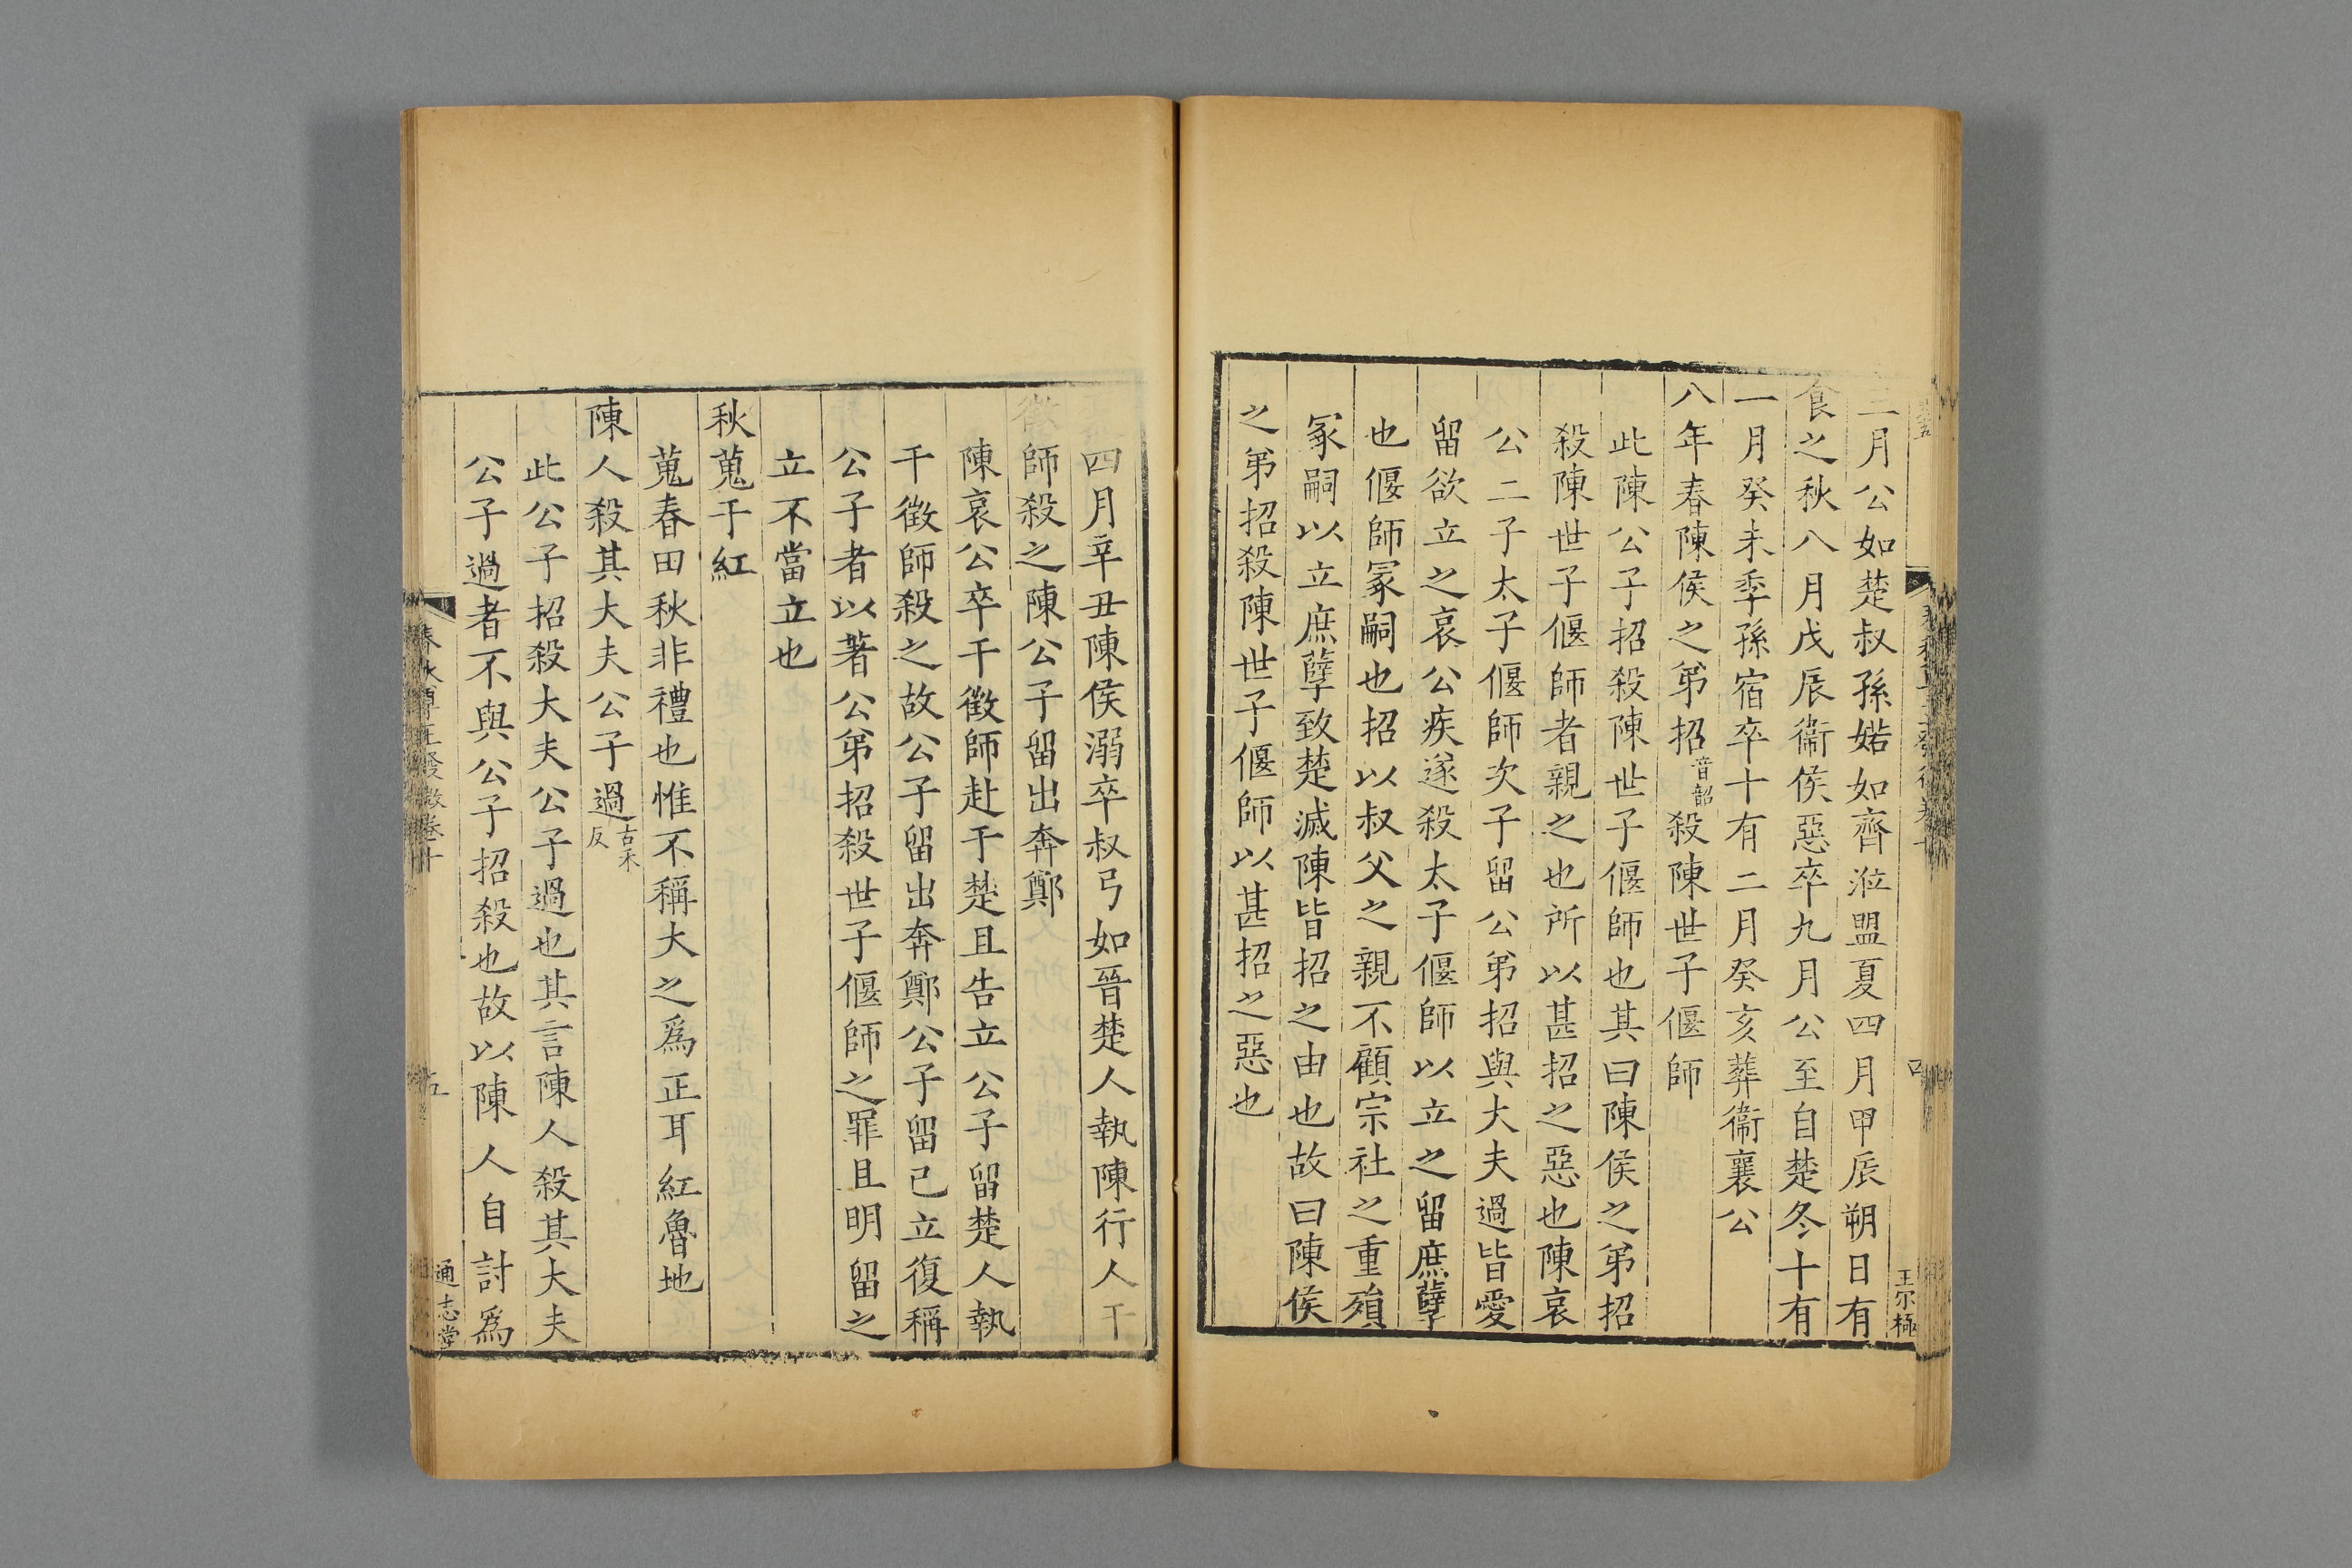 三月公如楚叔孫婼如齊涖盟夏四月甲辰朔日有
食之秋八月戊辰衞侯惡卒九月公至自楚冬十有
一月癸未季孫宿卒十有二月癸亥葬衞襄公
八年春陳侯之弟招音韶殺陳世子偃師
此陳公子招殺陳世子偃師也其曰陳侯之弟招
殺陳世子偃師者親之也所以甚招之惡也陳哀
公二子太子偃師次子留公弟招與大夫過皆愛
留欲立之哀公疾遂殺太子偃師以立之留庶孽
也偃師冢嗣也招以叔父之親不顧宗社之重殞
冢嗣以立庶孽致楚滅陳皆招之由也故曰陳侯
之弟招殺陳世子偃師以甚招之惡也
王尔極
四月辛丑陳侯溺卒叔弓如晉楚人執陳行人干
徵師殺之陳公子留出奔鄭
陳哀公卒干徵師赴于楚且告立公子留楚人執
干徵師殺之故公子留出奔鄭公子留已立復稱
公子者以著公弟招殺世子偃師之罪且明留之
立不當立也
秋蒐于紅
蒐春田秋非禮也惟不稱大之爲正耳紅魯地
陳人殺其大夫公子過古禾反
此公子招殺大夫公子過也其言陳人殺其大夫
公子過者不與公子招殺也故以陳人自討爲
春秋尊王發微卷十
五
通志堂